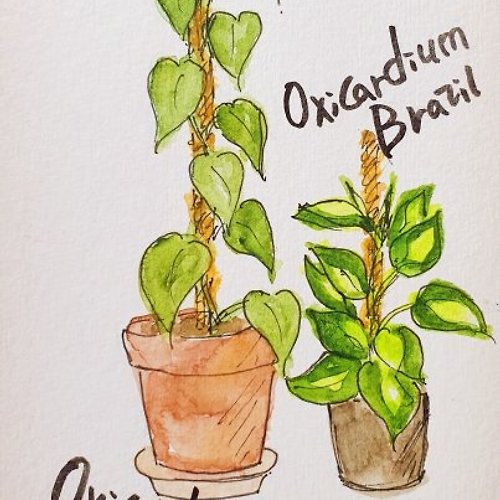 Oxicardium
Brazil